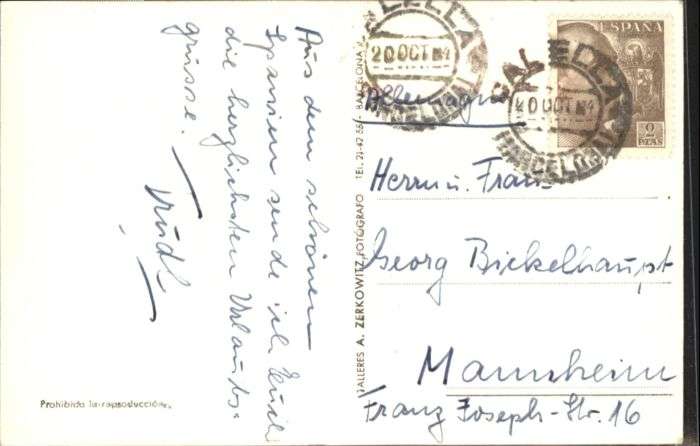 Aus dem schönen
Spanien sende ich Euch
die herzlichsten Urlaubs-
grüsse.
Prohibida la reproducción.
TALLERES A. ZERKOWITZ, FOTÓGRAFO TEL. 21-42 55 - BARCELONA
CALELLA
20 OCT 54
BARCELONA
CALELLA
20 OCT 54
BARCELONA
ESPAÑA
2
PTAS
Allemagne
Herrn u. Frau
Georg Bickelhaupt
Mannheim
Franz Joseph-Str. 16